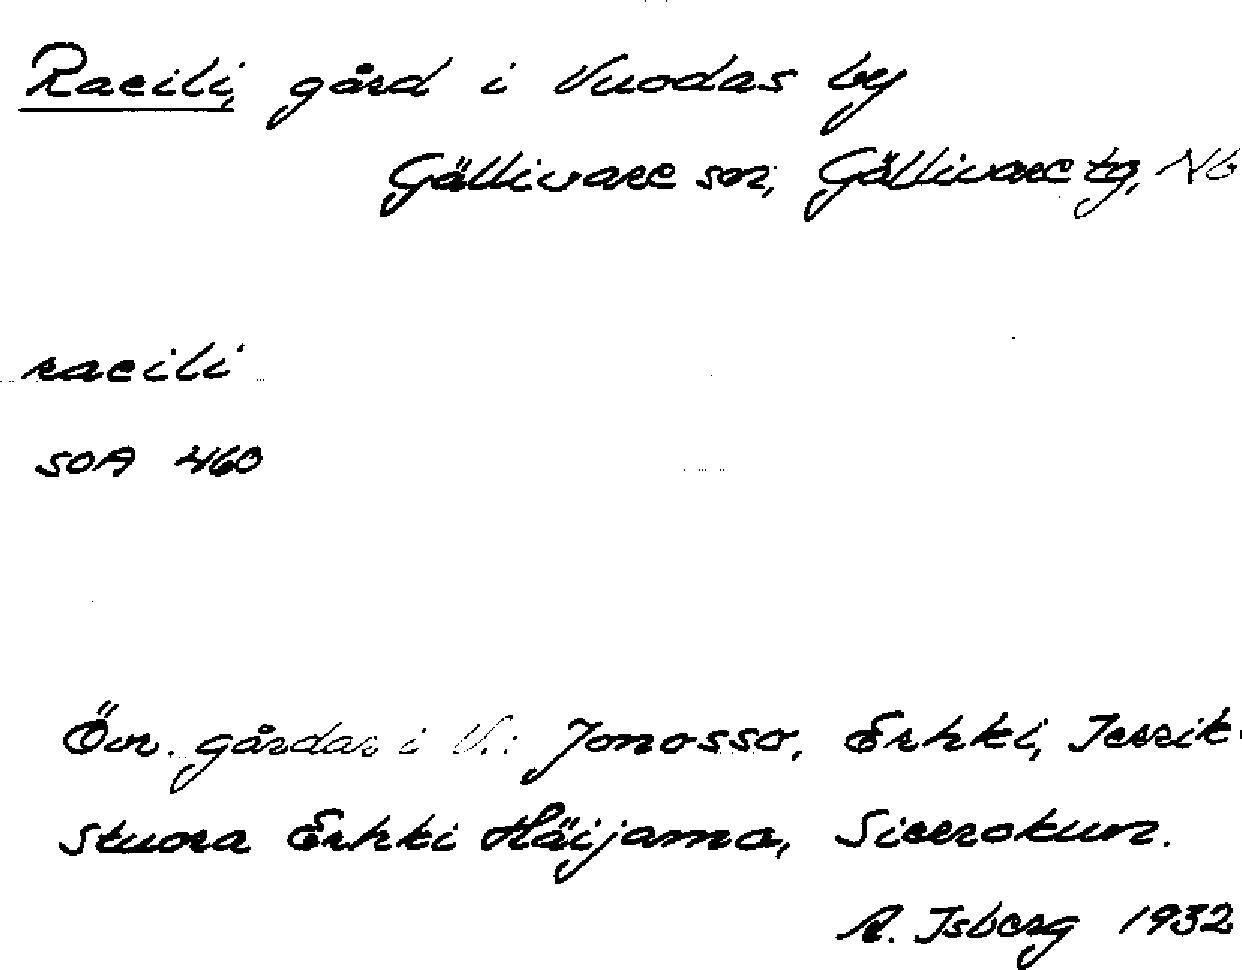 Racili, gård i Vuodas by
Gällivare sn, Gällivare tg, Nb
racili
SOA 460
Övr. gårdar i V.: Jonosso, Erkki, Jerrik
Stuora Erkki Häijama,
A. Isberg 1932